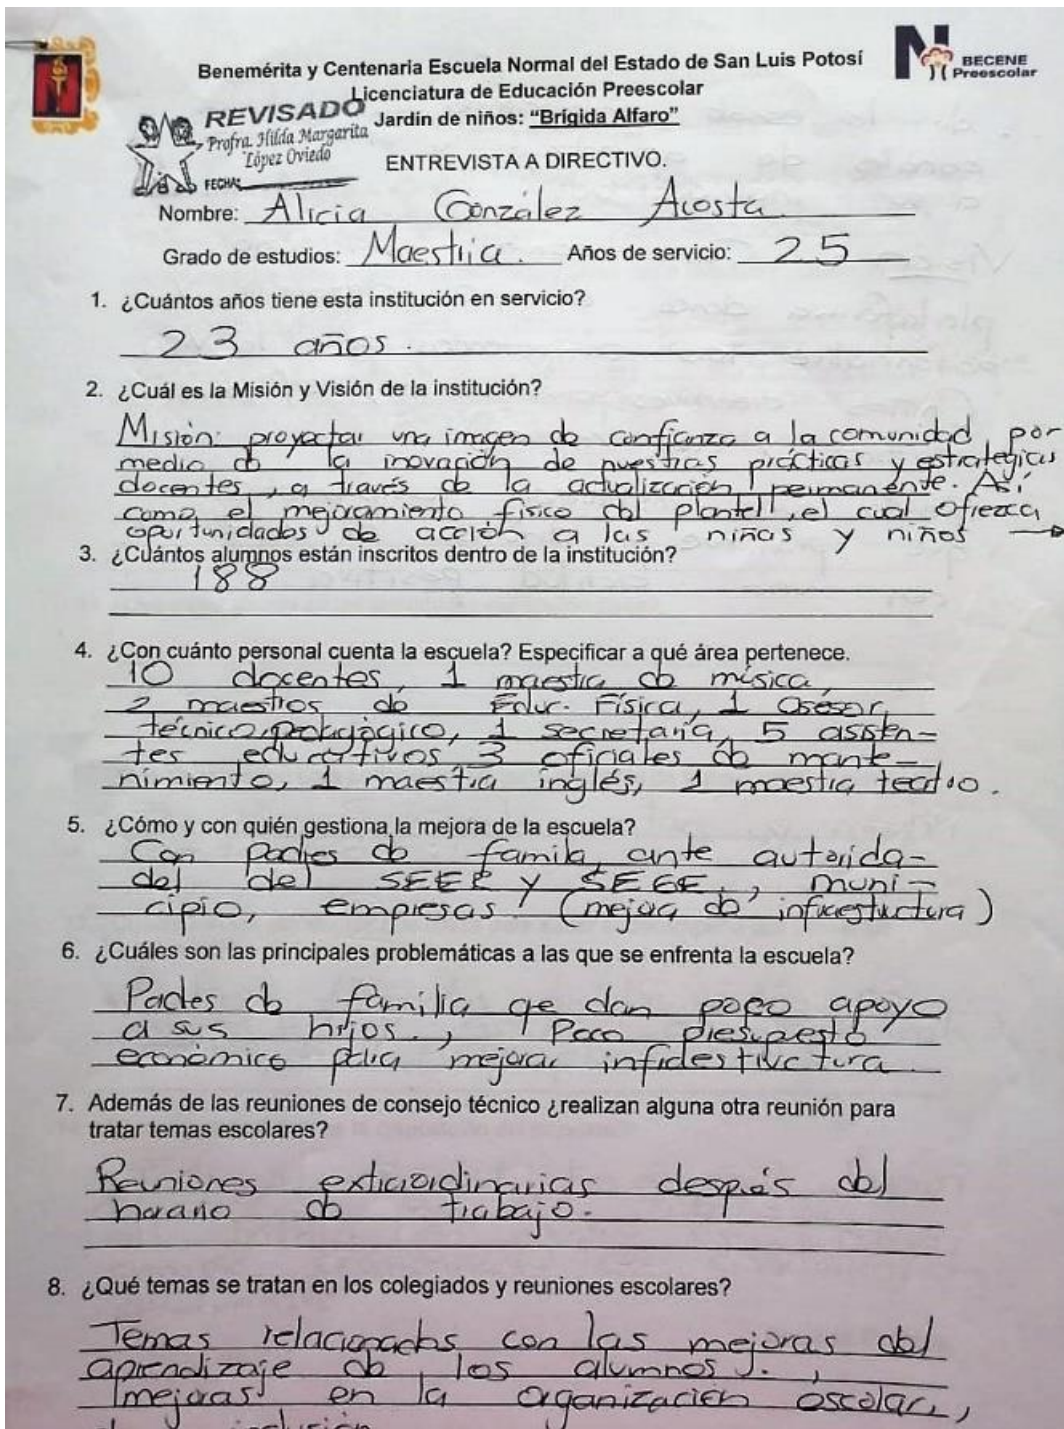 Benemérita y Centenaria Escuela Normal del Estado de San Luis Potosí
BECENE
Preescolar
Licenciatura de Educación Preescolar
REVISADO
Jardín de niños: “Brígida Alfaro”
Profra. Hilda Margarita
López Oviedo
FECHA:
ENTREVISTA A DIRECTIVO.
Nombre: Alicia González Acosta
Grado de estudios: Maestría. Años de servicio: 25
1. ¿Cuántos años tiene esta institución en servicio?
23 años.
2. ¿Cuál es la Misión y Visión de la institución?
Misión: proyectar una imagen de confianza a la comunidad, por
medio de la inovación de nuestras prácticas y estrategias
docentes, a través de la actualización permanente. Así
como el mejoramiento físico del plantel, el cual ofrezca
oportunidades de acción a las niñas y niños →
3. ¿Cuántos alumnos están inscritos dentro de la institución?
188
4. ¿Con cuánto personal cuenta la escuela? Especificar a qué área pertenece.
10 docentes, 1 maestra de música,
2 maestros de Educ. Física, 1 Asesor
técnico pedagógico, 1 secretaria, 5 asisten-
tes educativos 3 oficiales de mante-
nimiento, 1 maestra inglés, 1 maestra teatro.
5. ¿Cómo y con quién gestiona la mejora de la escuela?
Con padres de familia, ante autorida-
del del SEER y SEGE, muni-
cipio, empresas (mejora de infraestructura)
6. ¿Cuáles son las principales problemáticas a las que se enfrenta la escuela?
Padres de familia qe dan poco apoyo
a sus hijos, Poco
económico para mejorar infraestructura.
7. Además de las reuniones de consejo técnico ¿realizan alguna otra reunión para
tratar temas escolares?
Reuniones extraordinarias después del
horario de trabajo.
8. ¿Qué temas se tratan en los colegiados y reuniones escolares?
Temas relacionados con las mejoras del
aprendizaje de los alumnos.,
mejoras en la organización escolar,
inclusión